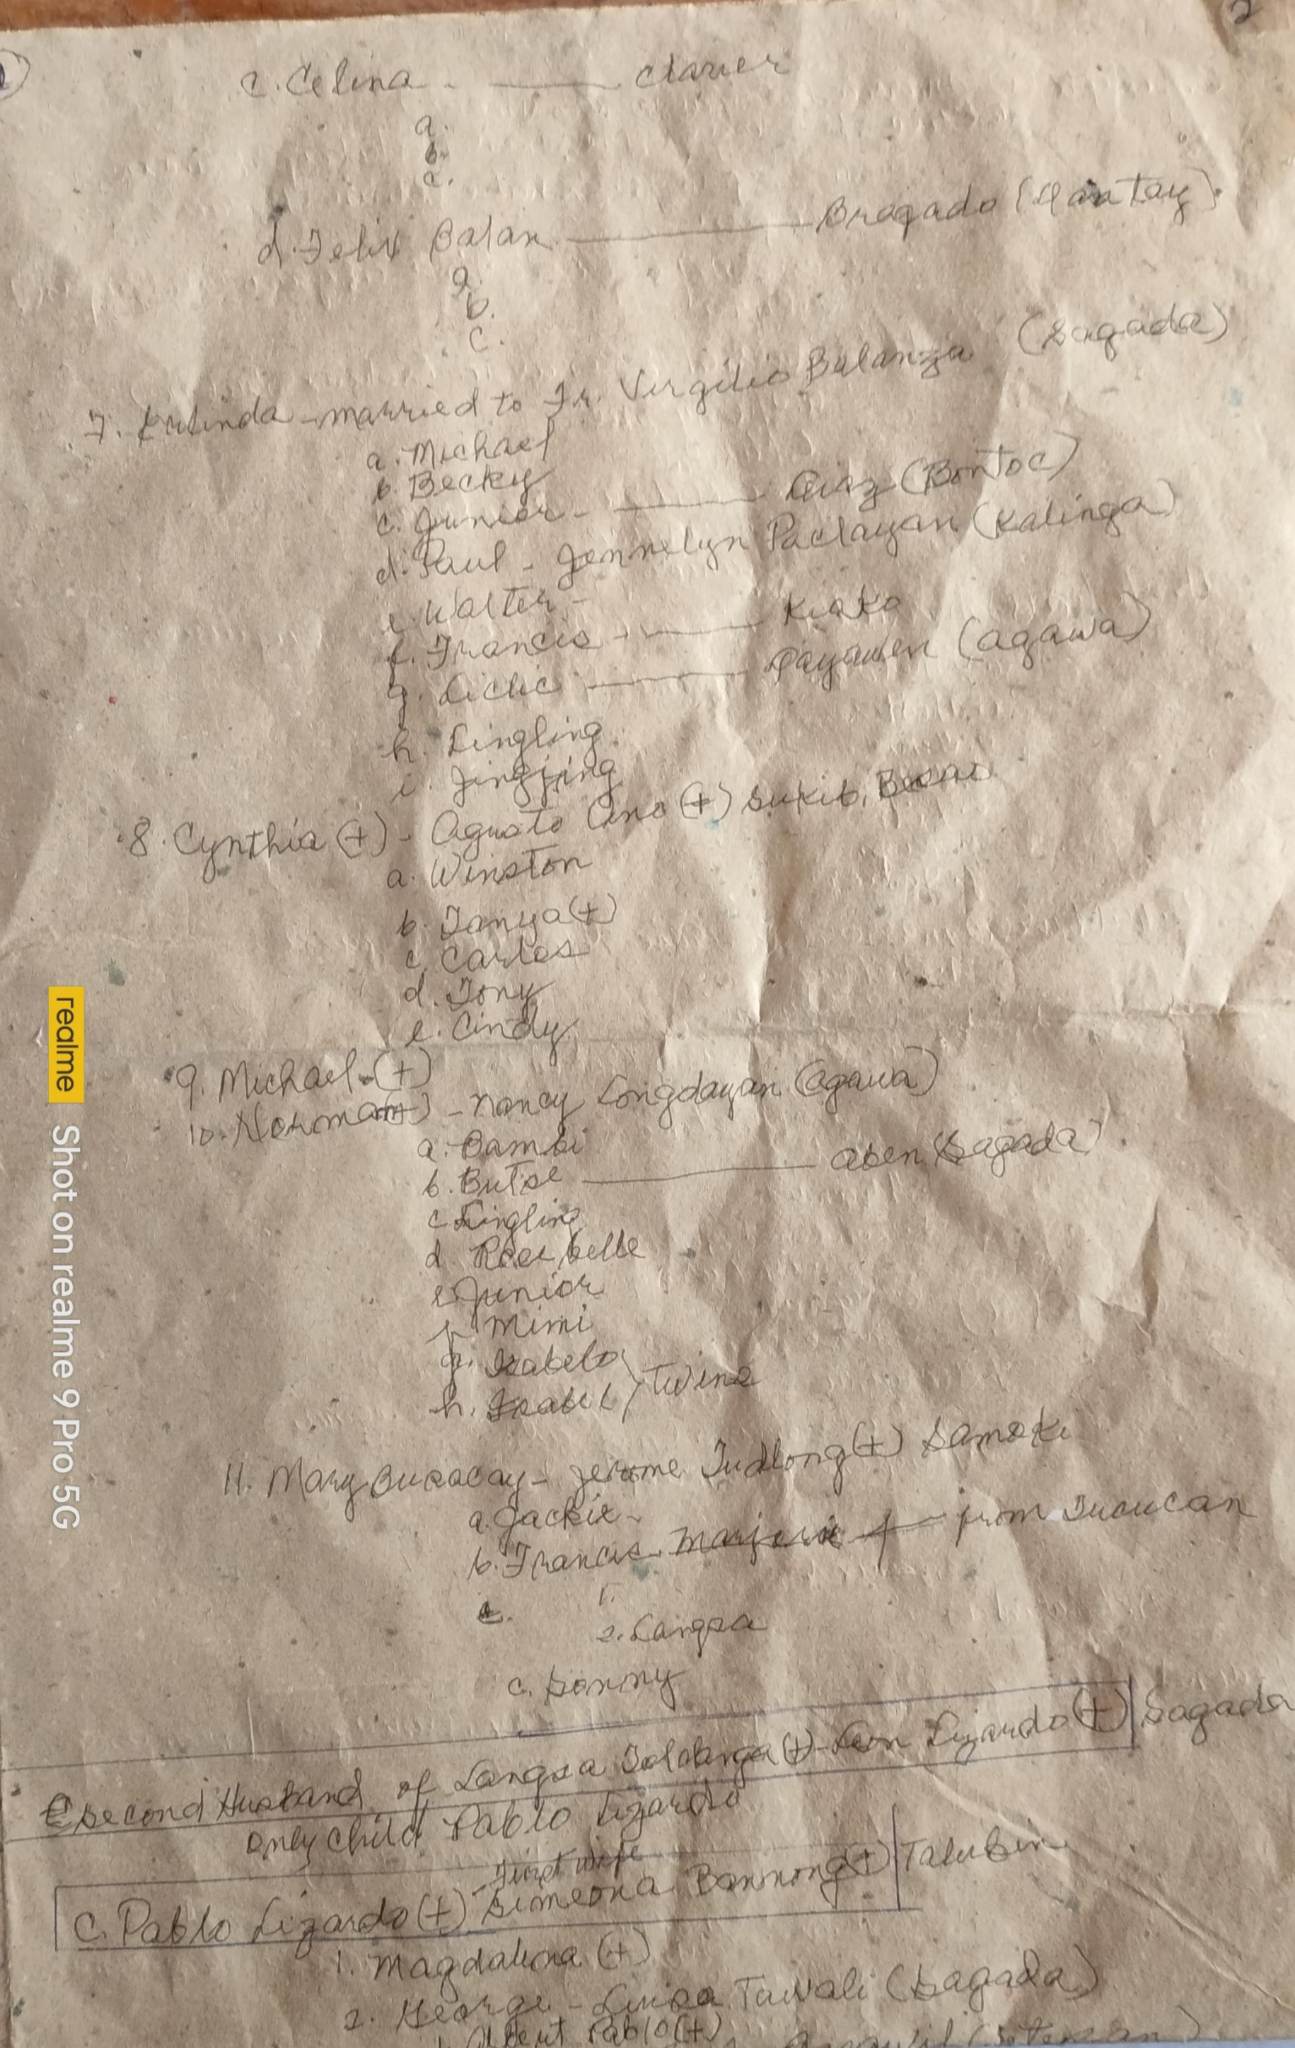 2
c. Celina - ——— Claver
a.
b.
c.
d. Felix Balan ——— Bragado (
a.
b.
c.
7. Erlinda - married to Fr. Virgilio Balanza (Sagada)
a. Michael
b. Becky
c. Junior - ——— Diaz (Bontoc)
d. Paul - Jennelyn Paclayan (Kalinga)
e. Walter -
f. Francis - ——— Kiako
g. Liclic ——— Payawen (Agawa)
h. Lingling
i. Jingjing
8. Cynthia (+) - Agusto (+) Sukib, Besao
a. Winston
b. Tanya (+)
c. Carlos
d. Tony
e. Cindy
9. Michael - (+)
10. Norman (+) - Nancy Longdayan (Agawa)
a. Bambi
b. Butse ——— Aben (Sagada)
c. Lingling
d. Rose belle
e. Junior
f. Mimi
g. Isabelo
h. Isabel } Twins
11. Mary Busacay - Jerome Tudlong (+) Samoki
a. Jackie -
b. Francis - Marjorie from Tucucan
1.
2. Langsa
c. Sonny
Second Husband of Langsa (+) - Leon Lizardo (+) Sagada
Only Child Pablo Lizardo
First wife
C. Pablo Lizardo (+) Simeona Bannong (+) Talubin
1. Magdalena (+)
2. George - Luisa Tawali (Sagada)
1. Albert Pablo (+)
realme Shot on realme 9 Pro 5G